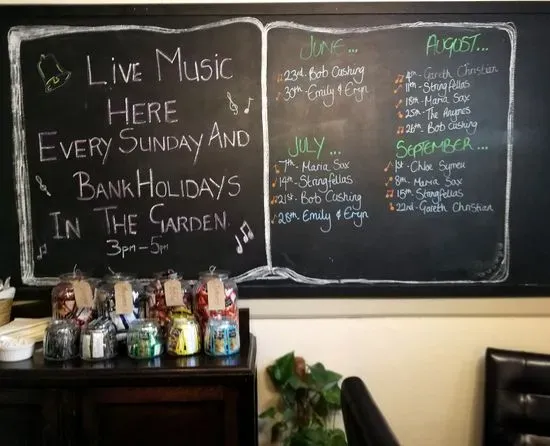 Live Music
Here
Every Sunday And
Bank Holidays
In The Garden
3pm-5pm
June...
23rd- Bob Cushing
30th- Emily & Eryn
July...
7th- Maria Sax
14th- Stringfellas
21st- Bob Cushing
28th- Emily & Eryn
August...
4th- Gareth Christian
11th- Stringfellas
18th- Maria Sax
25th- The
26th- Bob Cushing
September...
1st- Chloe
8th- Maria Sax
15th- Stringfellas
22nd- Gareth Christian